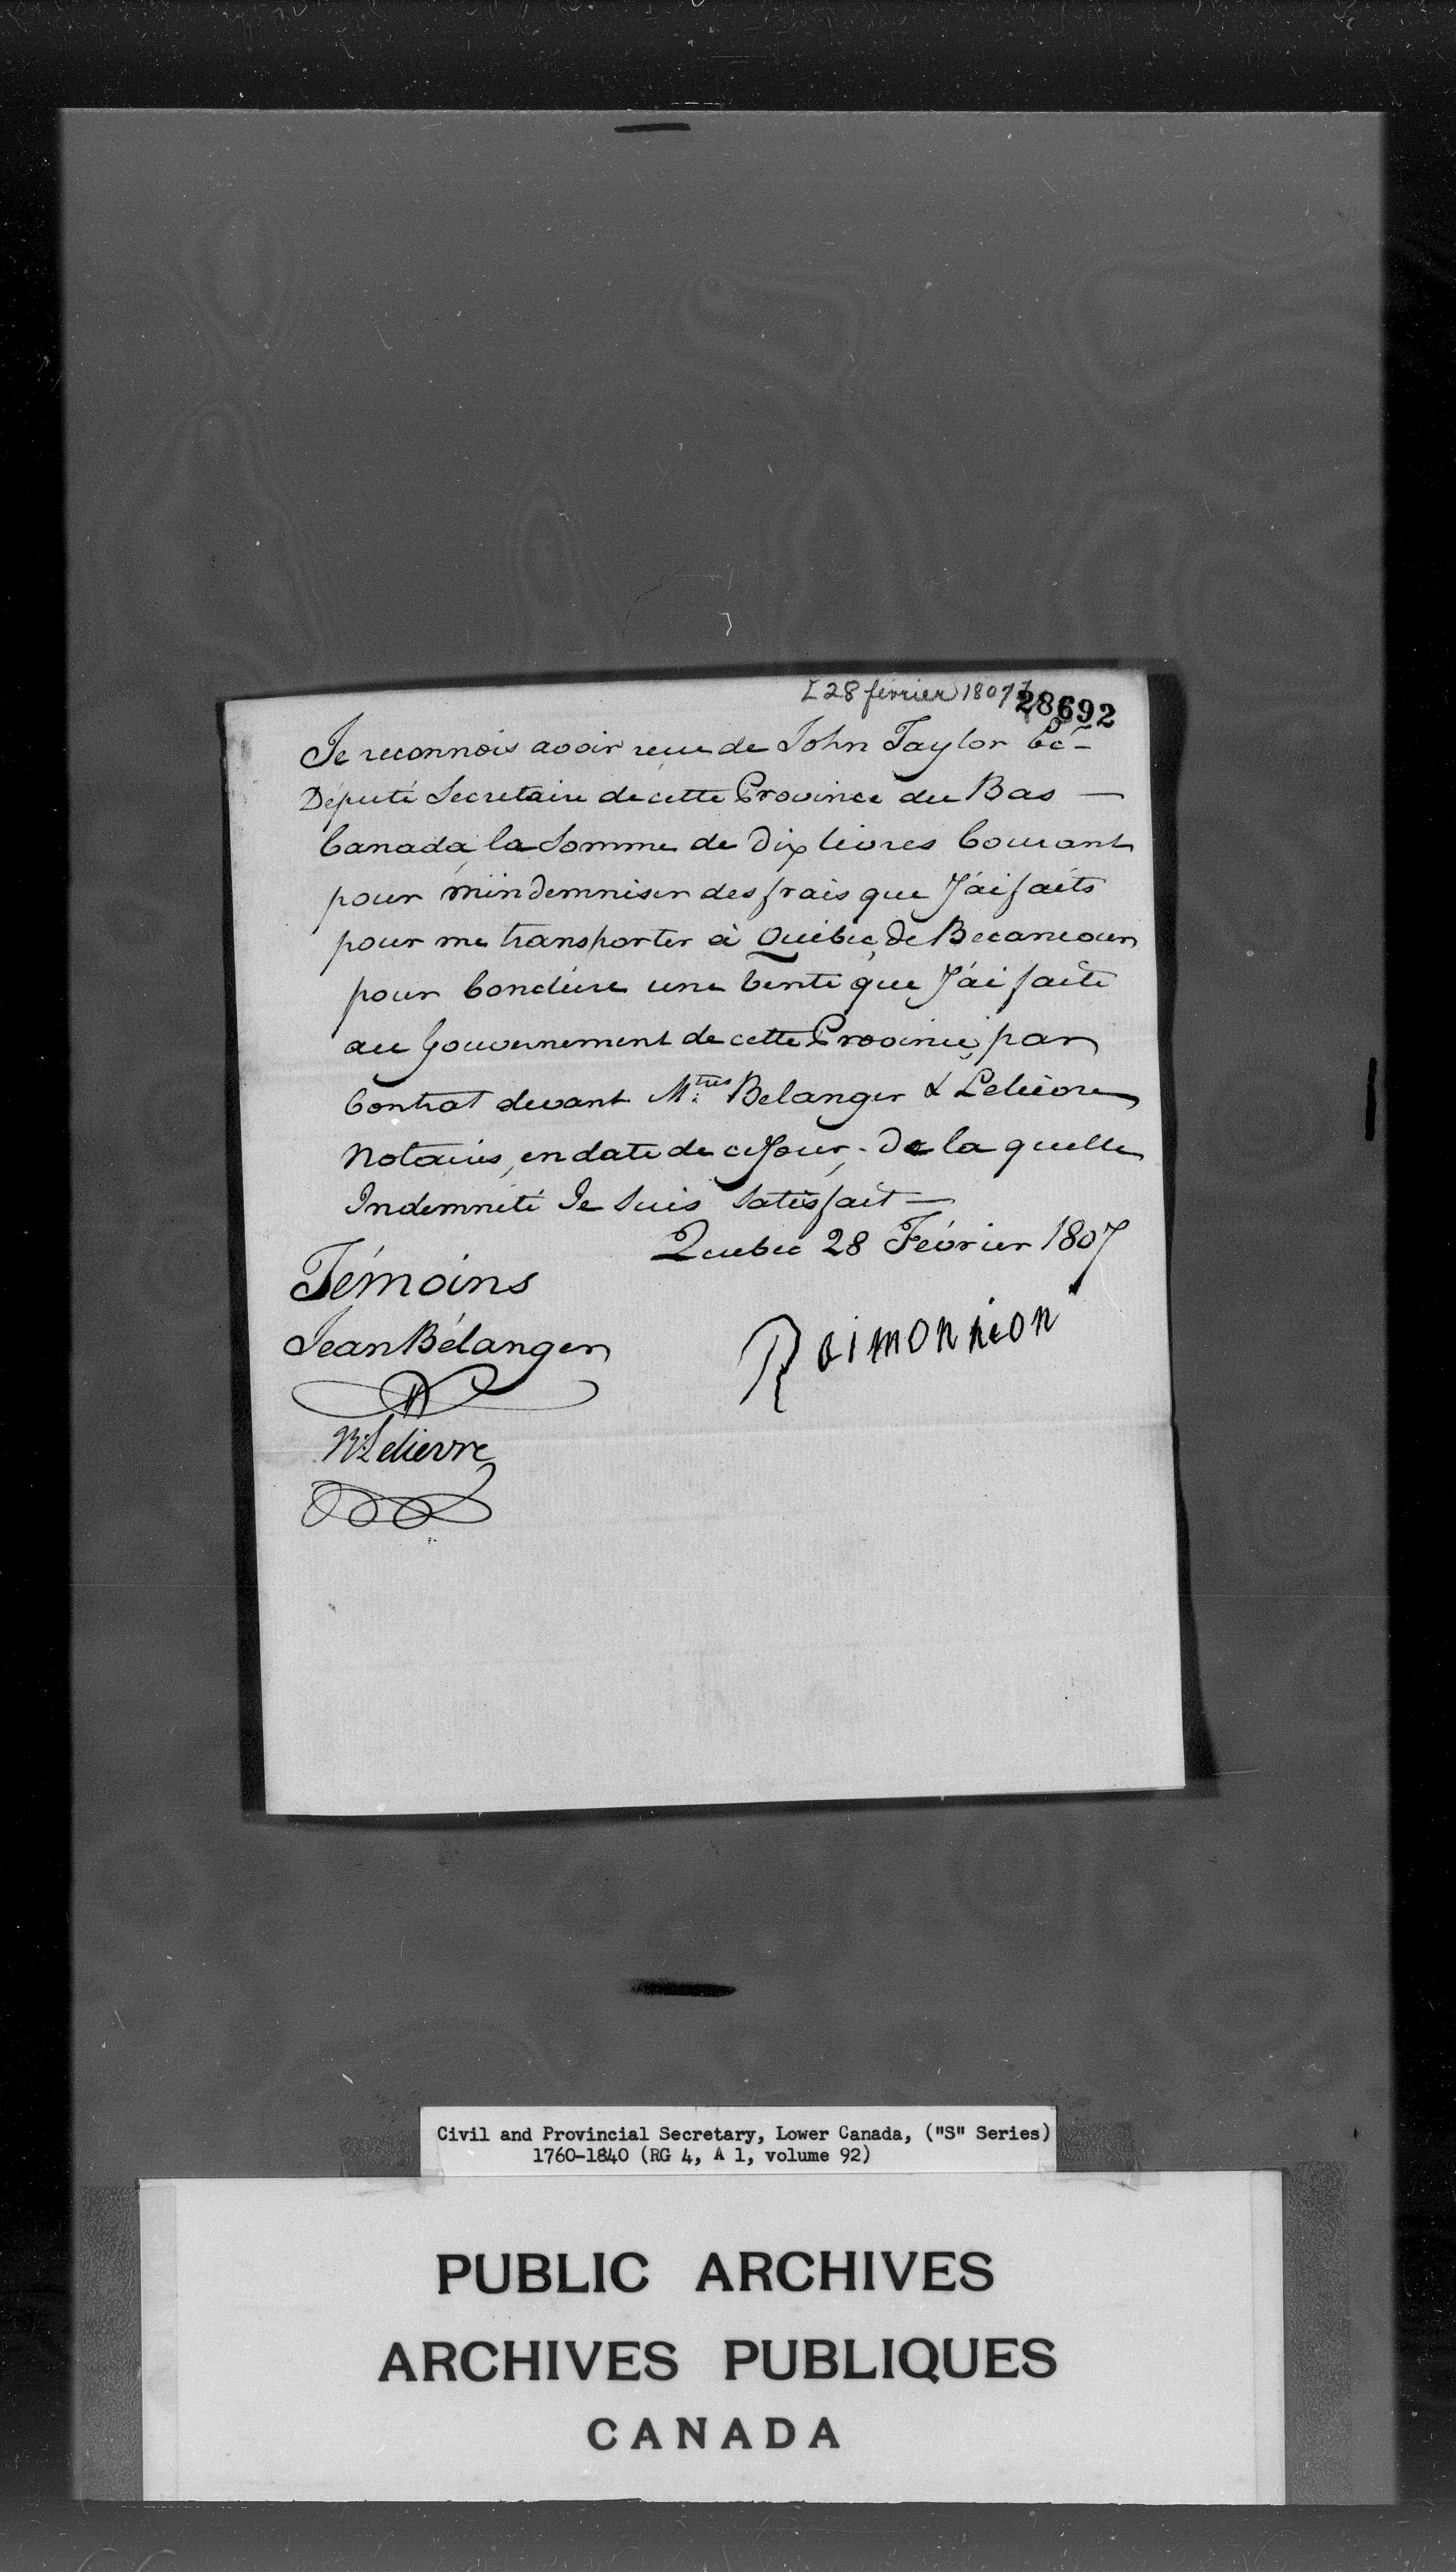 [28 février 1807]
28692
Je reconnois avoir reçu de John Taylor Ec.
Député Secretaire de cette Province du Bas —
Canada, la Somme de Dix livres Courant
pour m'indemniser des frais que J'ai faits
pour me transporter à Québec, de Becancour
pour Conclure une Vente que J'ai faite
au Gouvernement de cette Province, par
Contrat devant Mtres Belanger & Lelievre
Notaires, en date de ce Jour, de la quelle
Indemnité Je Suis Satisfait —
Quebec 28 Février 1807
Témoins
Jean Bélanger
Raimonnion
R. Lelievre
Civil and Provincial Secretary, Lower Canada, ("S" Series)
1760-1840 (RG 4, A 1, volume 92)
PUBLIC ARCHIVES
ARCHIVES PUBLIQUES
CANADA